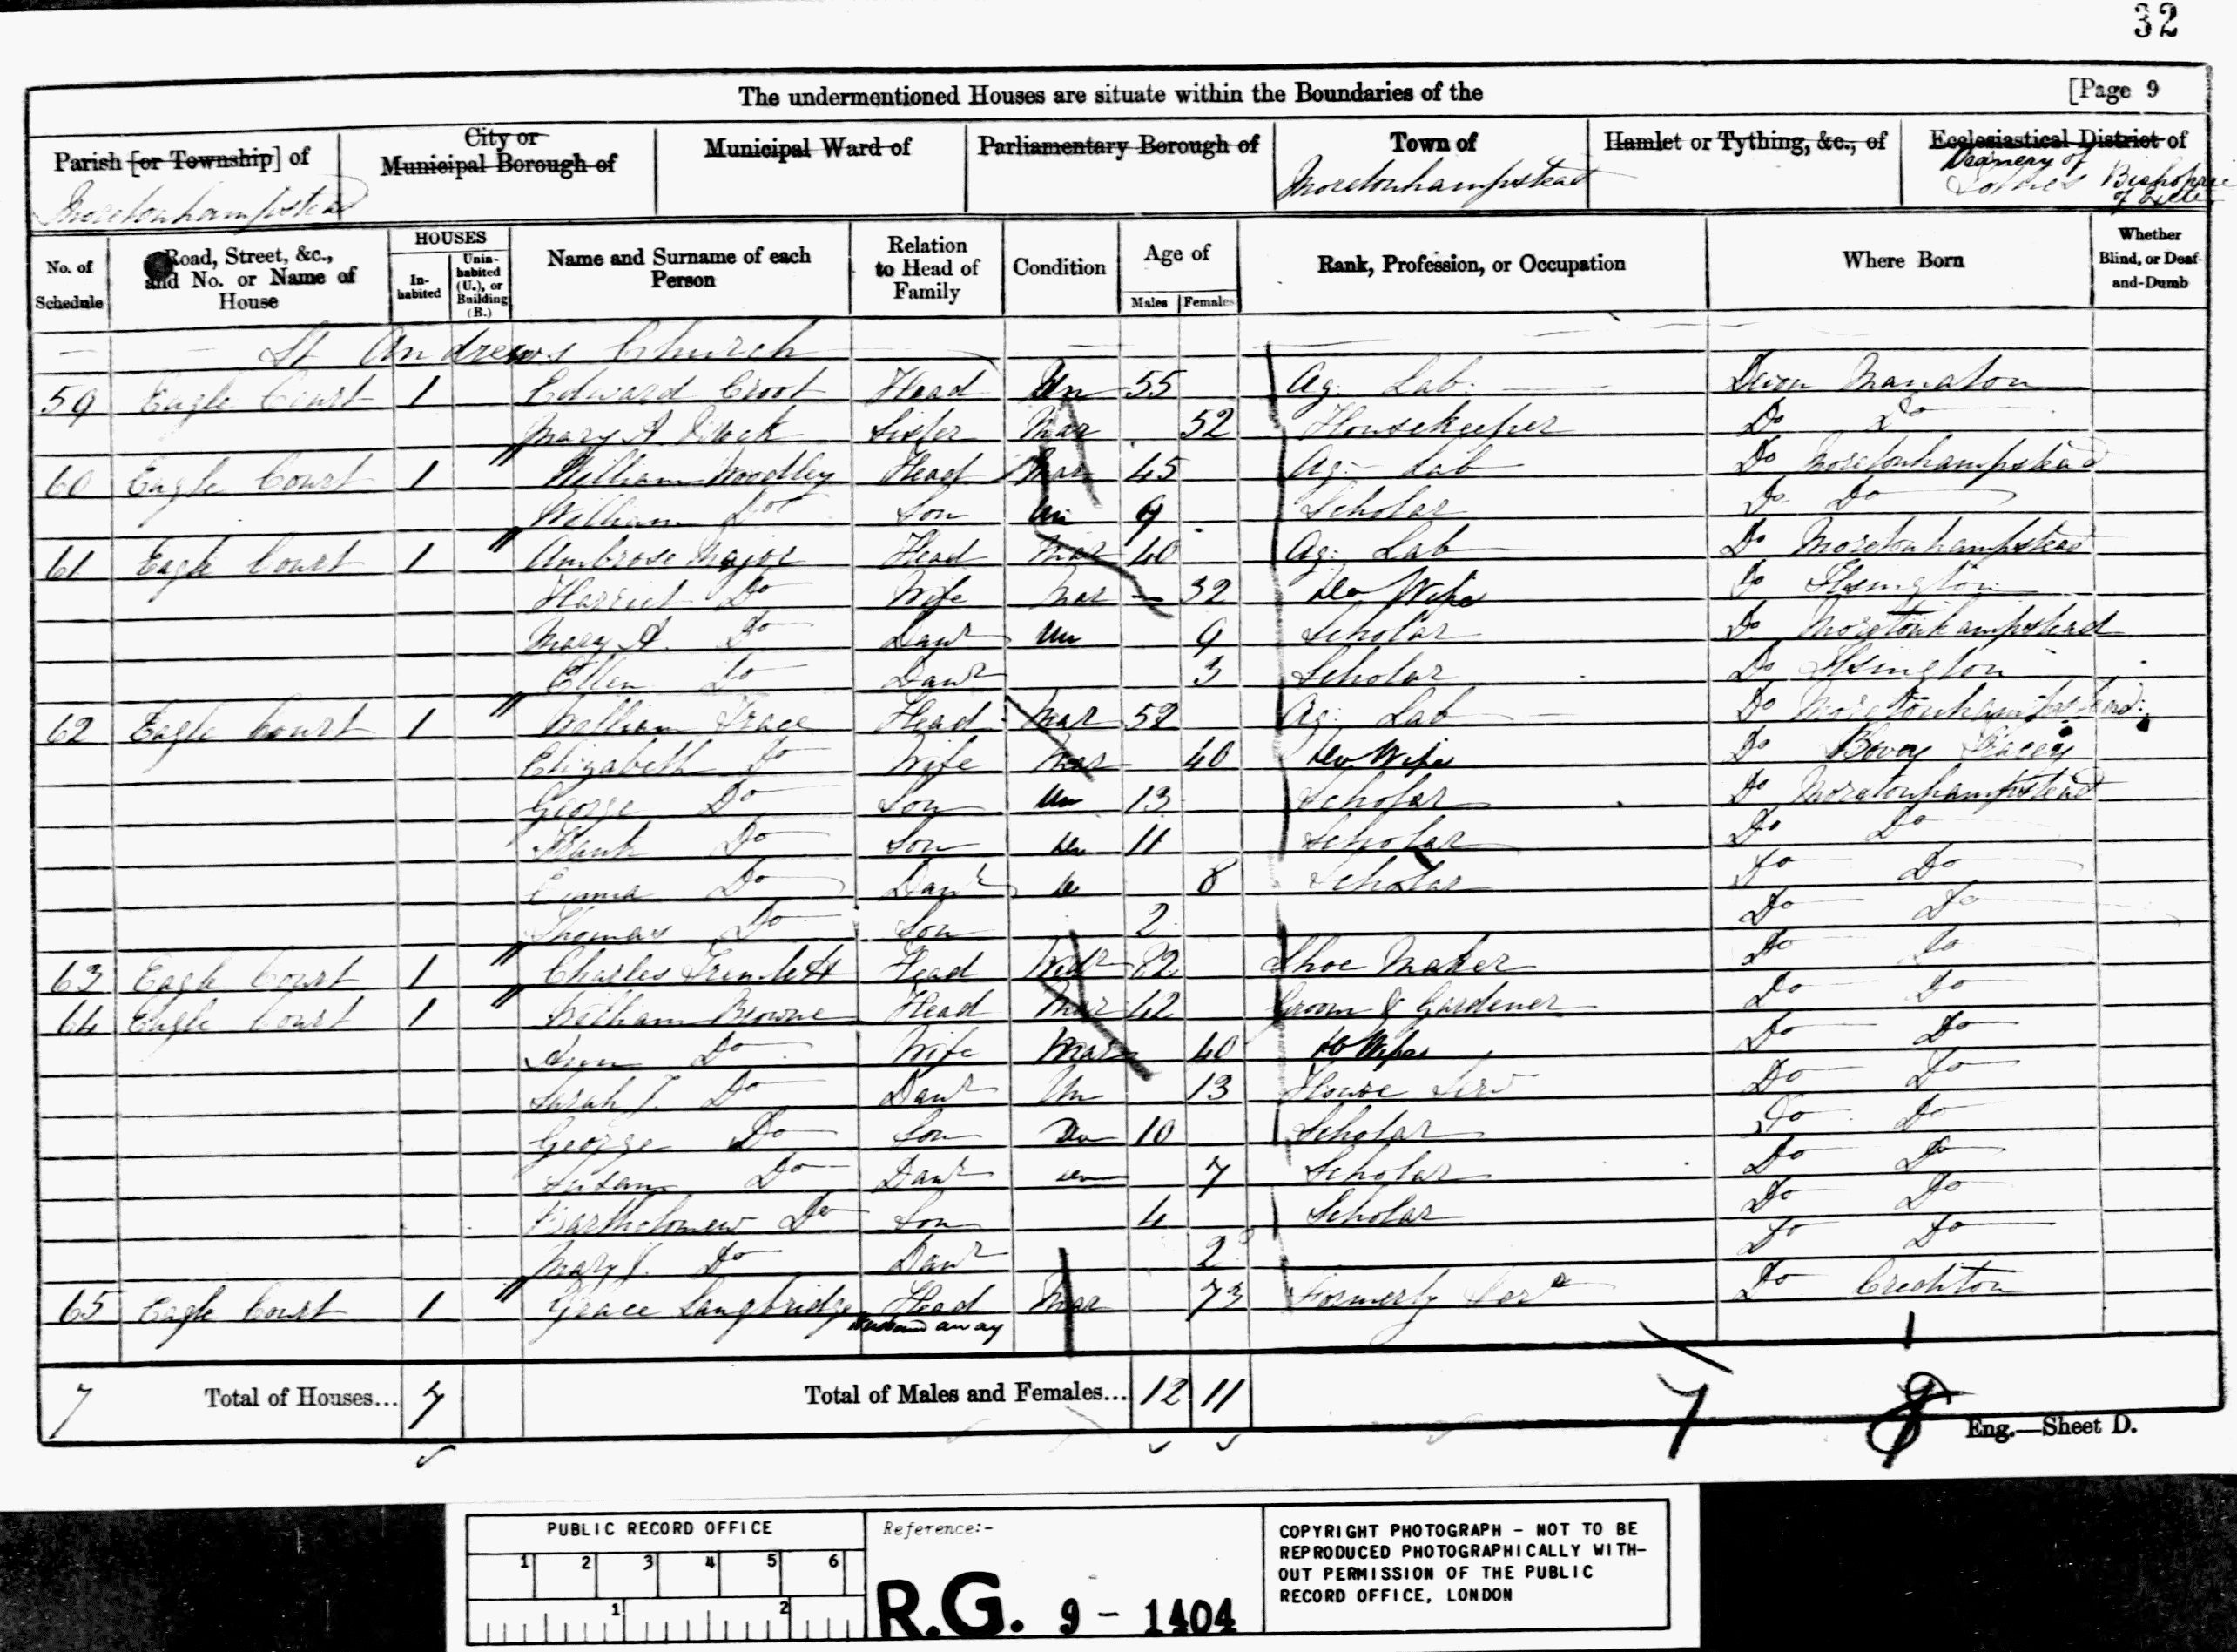 32
The undermentioned Houses are situate within the Boundaries of the [Page 9
Parish [or Township] of City or Municipal Borough of Municipal Ward of Parliamentary Borough of Town of Hamlet or Tything, &c., of Ecclesiastical District of
Moretonhampstead Moretonhampstead Deanery of Bishopric of
No. of Schedule Road, Street, &c., and No. or Name of House HOUSES Inhabited Uninhabited (U.), or Building (B.) Name and Surname of each Person Relation to Head of Family Condition Age of Males Females Rank, Profession, or Occupation Where Born Whether Blind, or Deaf-and-Dumb
St Andrews Church
59 Eagle Court 1 Edward Croot Head Un 55 Ag: Lab: Devon Manaton
Mary A. Sister Mar 52 Housekeeper Do Do
60 Eagle Court 1 William Woodley Head Mar 45 Ag: Lab Do Moretonhampstead
William Do Son Un 9 Scholar Do Do
61 Eagle Court 1 Ambrose Major Head Mar 40 Ag: Lab Do Moretonhampstead
Harriet Do Wife Mar 32 Do Wife Do Ilsington
Mary A. Do Daur Un 9 Scholar Do Moretonhampstead
Ellen Do Daur 3 Scholar Do Ilsington
62 Eagle Court 1 William Head Mar 52 Ag: Lab Do Moretonhampstead
Elizabeth Do Wife Mar 40 Do Wife Do Bovey Tracey
George Do Son Un 13 Scholar Do Moretonhampstead
Frank Do Son Un 11 Scholar Do Do
Emma Do Daur Un 8 Scholar Do Do
Thomas Do Son 2 Do Do
63 Eagle Court 1 Charles Tremlett Head Widr 82 Shoe Maker Do Do
64 Eagle Court 1 William Browne Head Mar 42 Groom & Gardener Do Do
Ann Do Wife Mar 40 Do Wife Do Do
Sarah J. Do Daur Un 13 House Serv Do Do
George Do Son Un 10 Scholar Do Do
Susan Do Daur Un 7 Scholar Do Do
Bartholomew Do Son 4 Scholar Do Do
Mary J. Do Daur 2 Do Do
65 Eagle Court 1 Grace Langbridge Head Mar 73 Formerly Do Crediton
Husband away
7 Total of Houses... 7 Total of Males and Females... 12 11
7 8 Eng.—Sheet D.
PUBLIC RECORD OFFICE
1 2 3 4 5 6
1 2
Reference:-
R.G. 9 - 1404
COPYRIGHT PHOTOGRAPH - NOT TO BE
REPRODUCED PHOTOGRAPHICALLY WITH-
OUT PERMISSION OF THE PUBLIC
RECORD OFFICE, LONDON